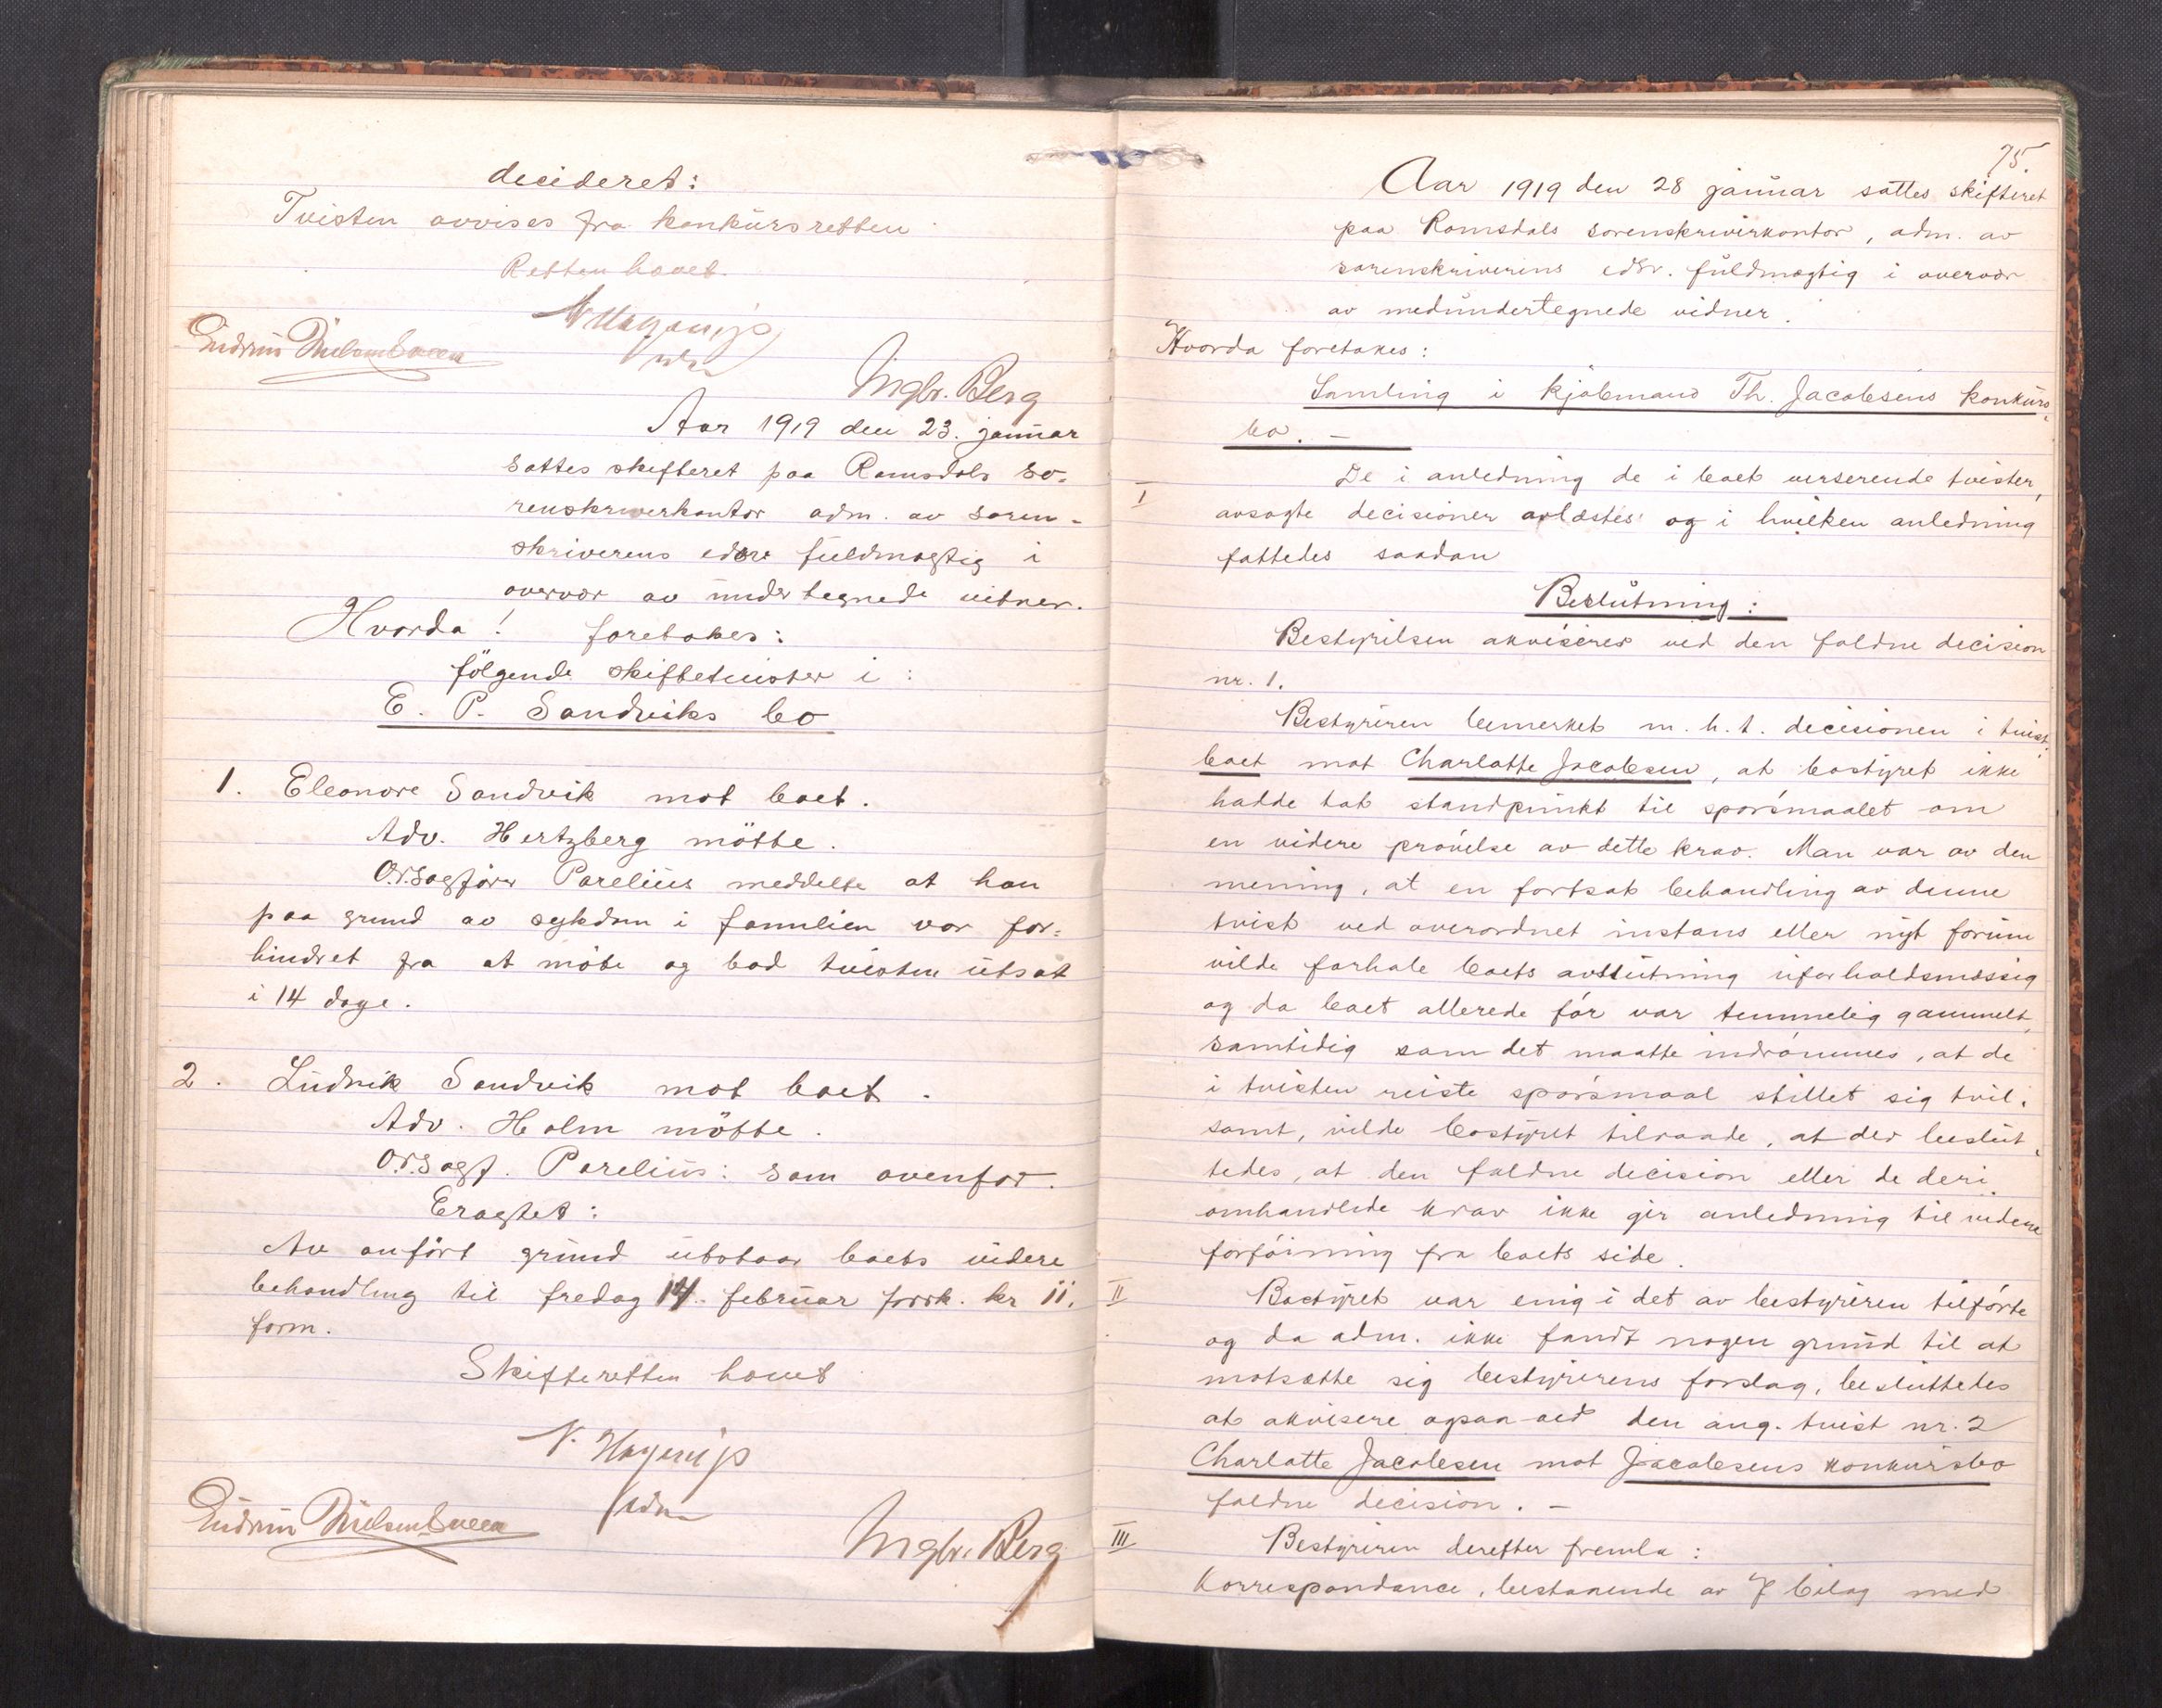 decideret:
Tvisten avvises fra konkursretten
Retten hævet.
Ingbr. Berg
Aar 1919 den 23. januar
sattes skifteret paa Romsdals so-
renskriverkontor adm. av soren-
skriverens edsv. fuldmægtig i
overvær av undertegnede vitner.
Hvorda! foretokes:
følgende skiftetvister i:
E. P. Sandviks bo
1. Eleonore Sandvik mot boet.
Adv. Hertzberg møtte.
O.r.sagfører Parelius meddelte at han
paa grund av sykdom i familien var for-
hindret fra at møte og bad tvisten utsat
i 14 dage.
2. Ludvik Sandvik mot boet.
Adv. Holm møtte.
O.r.sagf. Parelius: som ovenfor.
Eragtet:
Av anført grund utstaar boets videre
behandling til fredag 14. februar förstk. kr 11.
form.
Skifteretten hævet
N. Hagerup
adm
Ingbr. Berg
75.
Aar 1919 den 28 januar sattes skifteret
paa Romsdals sorenskriverkontor, adm. av
sorenskriverens edsv. fuldmægtig i overvær
av medundertegnede vidner.
Hvorda foretokes:
Samling i kjøbmand Th. Jacobsens konkurs-
bo. –
I De i anledning de i boet verserende tvister,
avsagte decisioner oplæstes og i hvilken anledning
fattedes saadan
Beslutning:
Bestyrelsen akviserer ved den faldne decision
nr. 1.
Bestyreren bemerket m. h. t. decisionen i tvist.
boet mot Charlotte Jacobsen, at bostyret ikke
hadde tat standpunkt til spørsmaalet om
en videre prøvelse av dette krav. Man var av den
mening, at en fortsat behandling av denne
tvist ved overordnet instans eller nyt forum
vilde forhale boets avslutning uforholdsmæssig
og da boet allerede før var temmelig gammelt,
samtidig som det maatte indrømmes, at de
i tvisten reiste spørsmaal stillet sig tvil-
samt, vilde bostyret tilraade, at der beslut-
tedes, at den faldne decision eller de deri
omhandlede krav ikke gir anledning til videre
forføining fra boets side.
II Bostyret var enig i det av bestyreren tilførte
og da adm. ikke fandt nogen grund til at
motsætte sig bestyrerens forslag, besluttedes
at akvisere ogsaa ved den ang. tvist nr. 2
Charlotte Jacobsen mot Jacobsens konkursbo
faldne decision. –
III Bestyreren derefter fremla:
Korrespondance, bestaaende av 7 bilag med